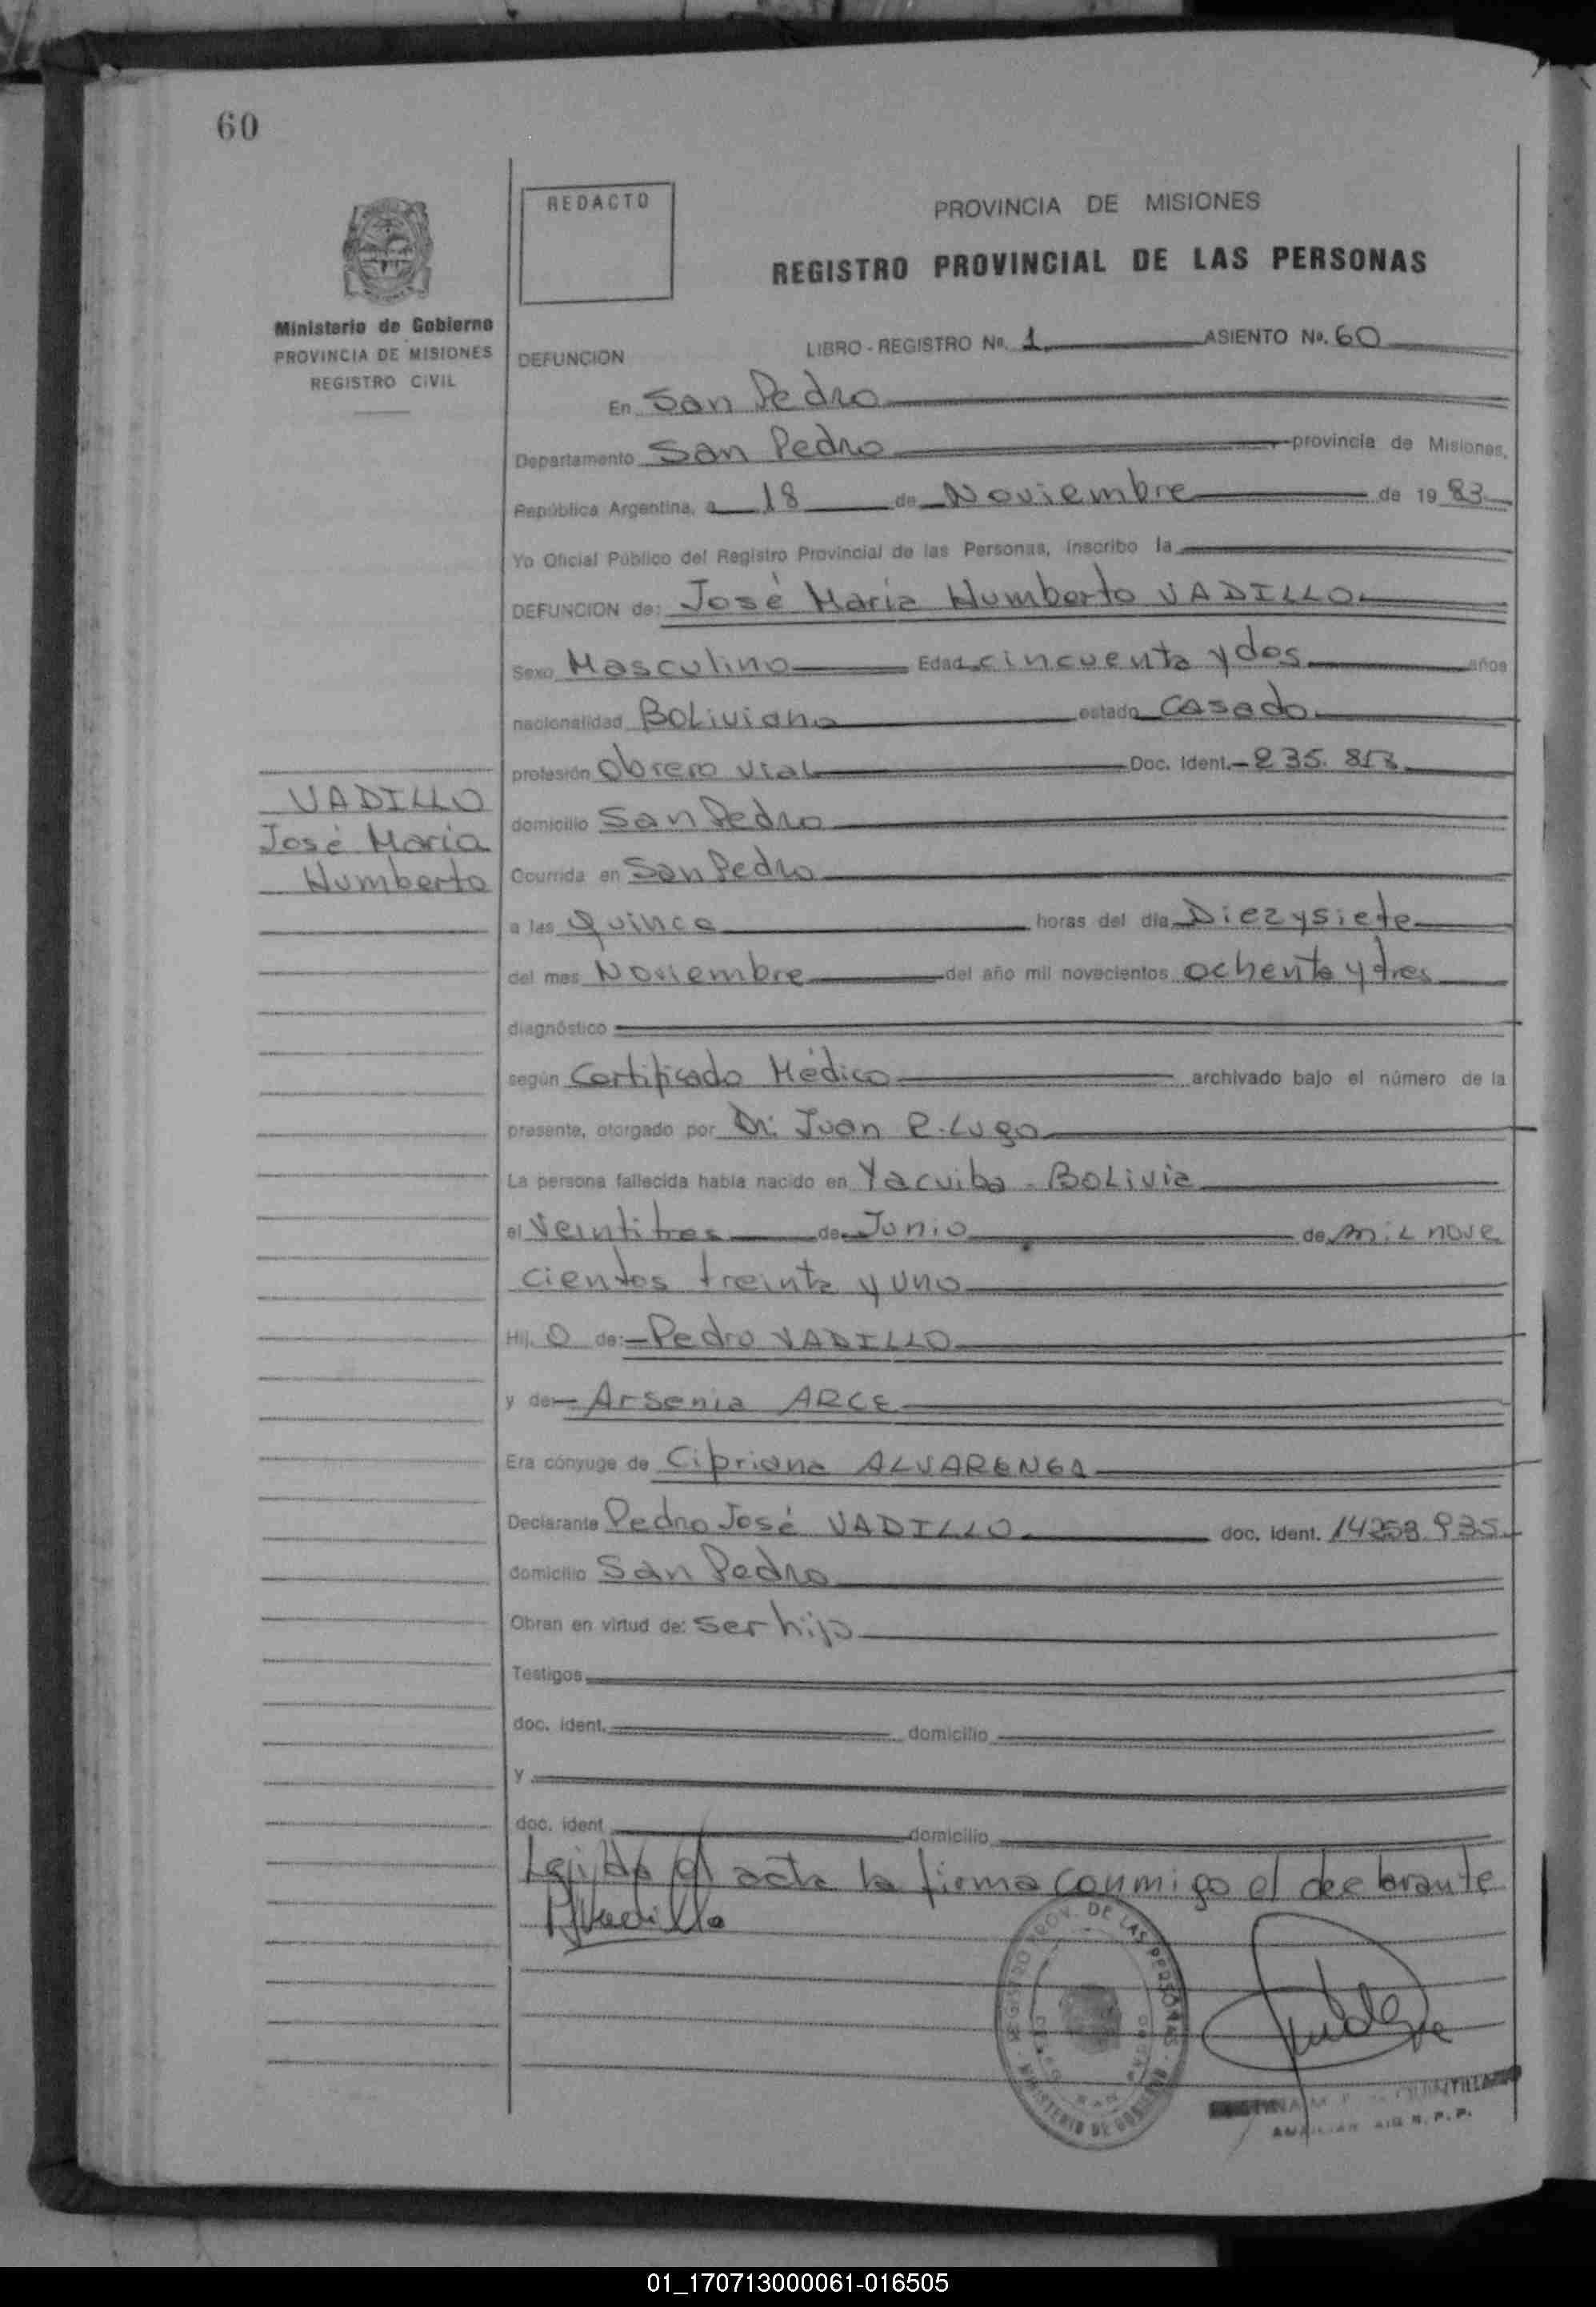 60
REDACTO
PROVINCIA DE MISIONES
REGISTRO PROVINCIAL DE LAS PERSONAS
Ministerio de Gobierno
PROVINCIA DE MISIONES
REGISTRO CIVIL
DEFUNCION LIBRO - REGISTRO No. 1 ASIENTO No. 60
En San Pedro
Departamento San Pedro provincia de Misiones,
República Argentina, a 18 de Noviembre de 19 83
Yo Oficial Público del Registro Provincial de las Personas, inscribo la
DEFUNCION de: José Maria Humberto VADILLO
Sexo Masculino Edad cincuenta y dos años
nacionalidad Boliviana estado Casado
profesión Obrero vial Doc. Ident.
VADILLO
José Maria
Humberto
domicilio San Pedro
Ocurrida en San Pedro
a las Quince horas del día Diez y siete
del mes Noviembre del año mil novecientos ochenta y tres
diagnóstico
según Certificado Médico archivado bajo el número de la
presente, otorgado por Dr. Juan R. Lugo
La persona fallecida había nacido en Yacuiba - Bolivia
el Veintitres de Junio de mil nove
cientos treinta y uno
Hij. O de: Pedro VADILLO
y de: Arsenia ARCE
Era cónyuge de Cipriana ALVARENGA
Declarante Pedro José VADILLO doc. ident. 14258.935
domicilio San Pedro
Obran en virtud de: ser hijo
Testigos
doc. ident. domicilio
y
doc. ident. domicilio
el acta la firma conmigo el declarante
REGISTRO PROV. DE LAS PERSONAS
MINISTERIO DE GOBIERNO
01_170713000061-016505